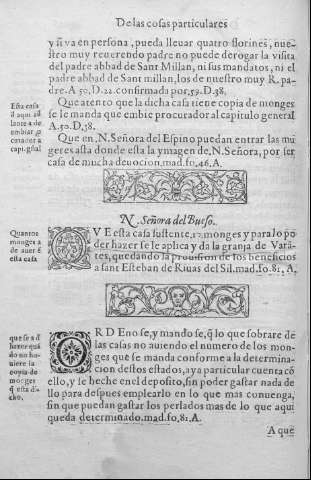 De las cosas particulares
y si va en persona, pueda lleuar quatro florines, nue-
stro muy reuerendo padre no puede derogar la visita
del padre abbad de Sant Millan, ni sus mandatos, ni el
padre abbad de Sant millan, los de nuestro muy R. pa-
dre. A. 50. D. 22. confirmada por, 59. D. 38.
Que atento que la dicha casa tiene copia de monges
se le manda que embie procurador al capitulo general
A. 50. D. 38.
Esta casa
d aqui ad
lante a de
embiar p
curador a
capi. gñal
Que en, N. Señora del Espino puedan entrar las mu
geres asta donde esta la ymagen de, N. Señora, por ser
casa de mucha deuocion, mad. fo, 46. A.
N. Señora del Bueso.
Quantos
monges a
de auer ē
esta casa
Q VE esta casa sustente, 12. monges y para lo po
der hazer se le aplica y da la granja de Vara-
tes, quedando la prouision de los beneficios
a sant Esteban de Riuas del Sil. mad. fo, 81, A.
que se a d
hazer quā
do no hu-
uiere la
copia de
monges
q̄ esta di-
cho.
O R D Eno se, y mando se, q̄ lo que sobrare de
las casas no auiendo el numero de los mon-
ges que se manda conforme a la determina-
cion destos estados, aya particular cuenta cō
ello, y se heche en el deposito, sin poder gastar nada de
llo para despues emplearlo en lo que mas conuenga,
sin que puedan gastar los perlados mas de lo que aqui
queda determinado. mad. fo, 81. A.
A que